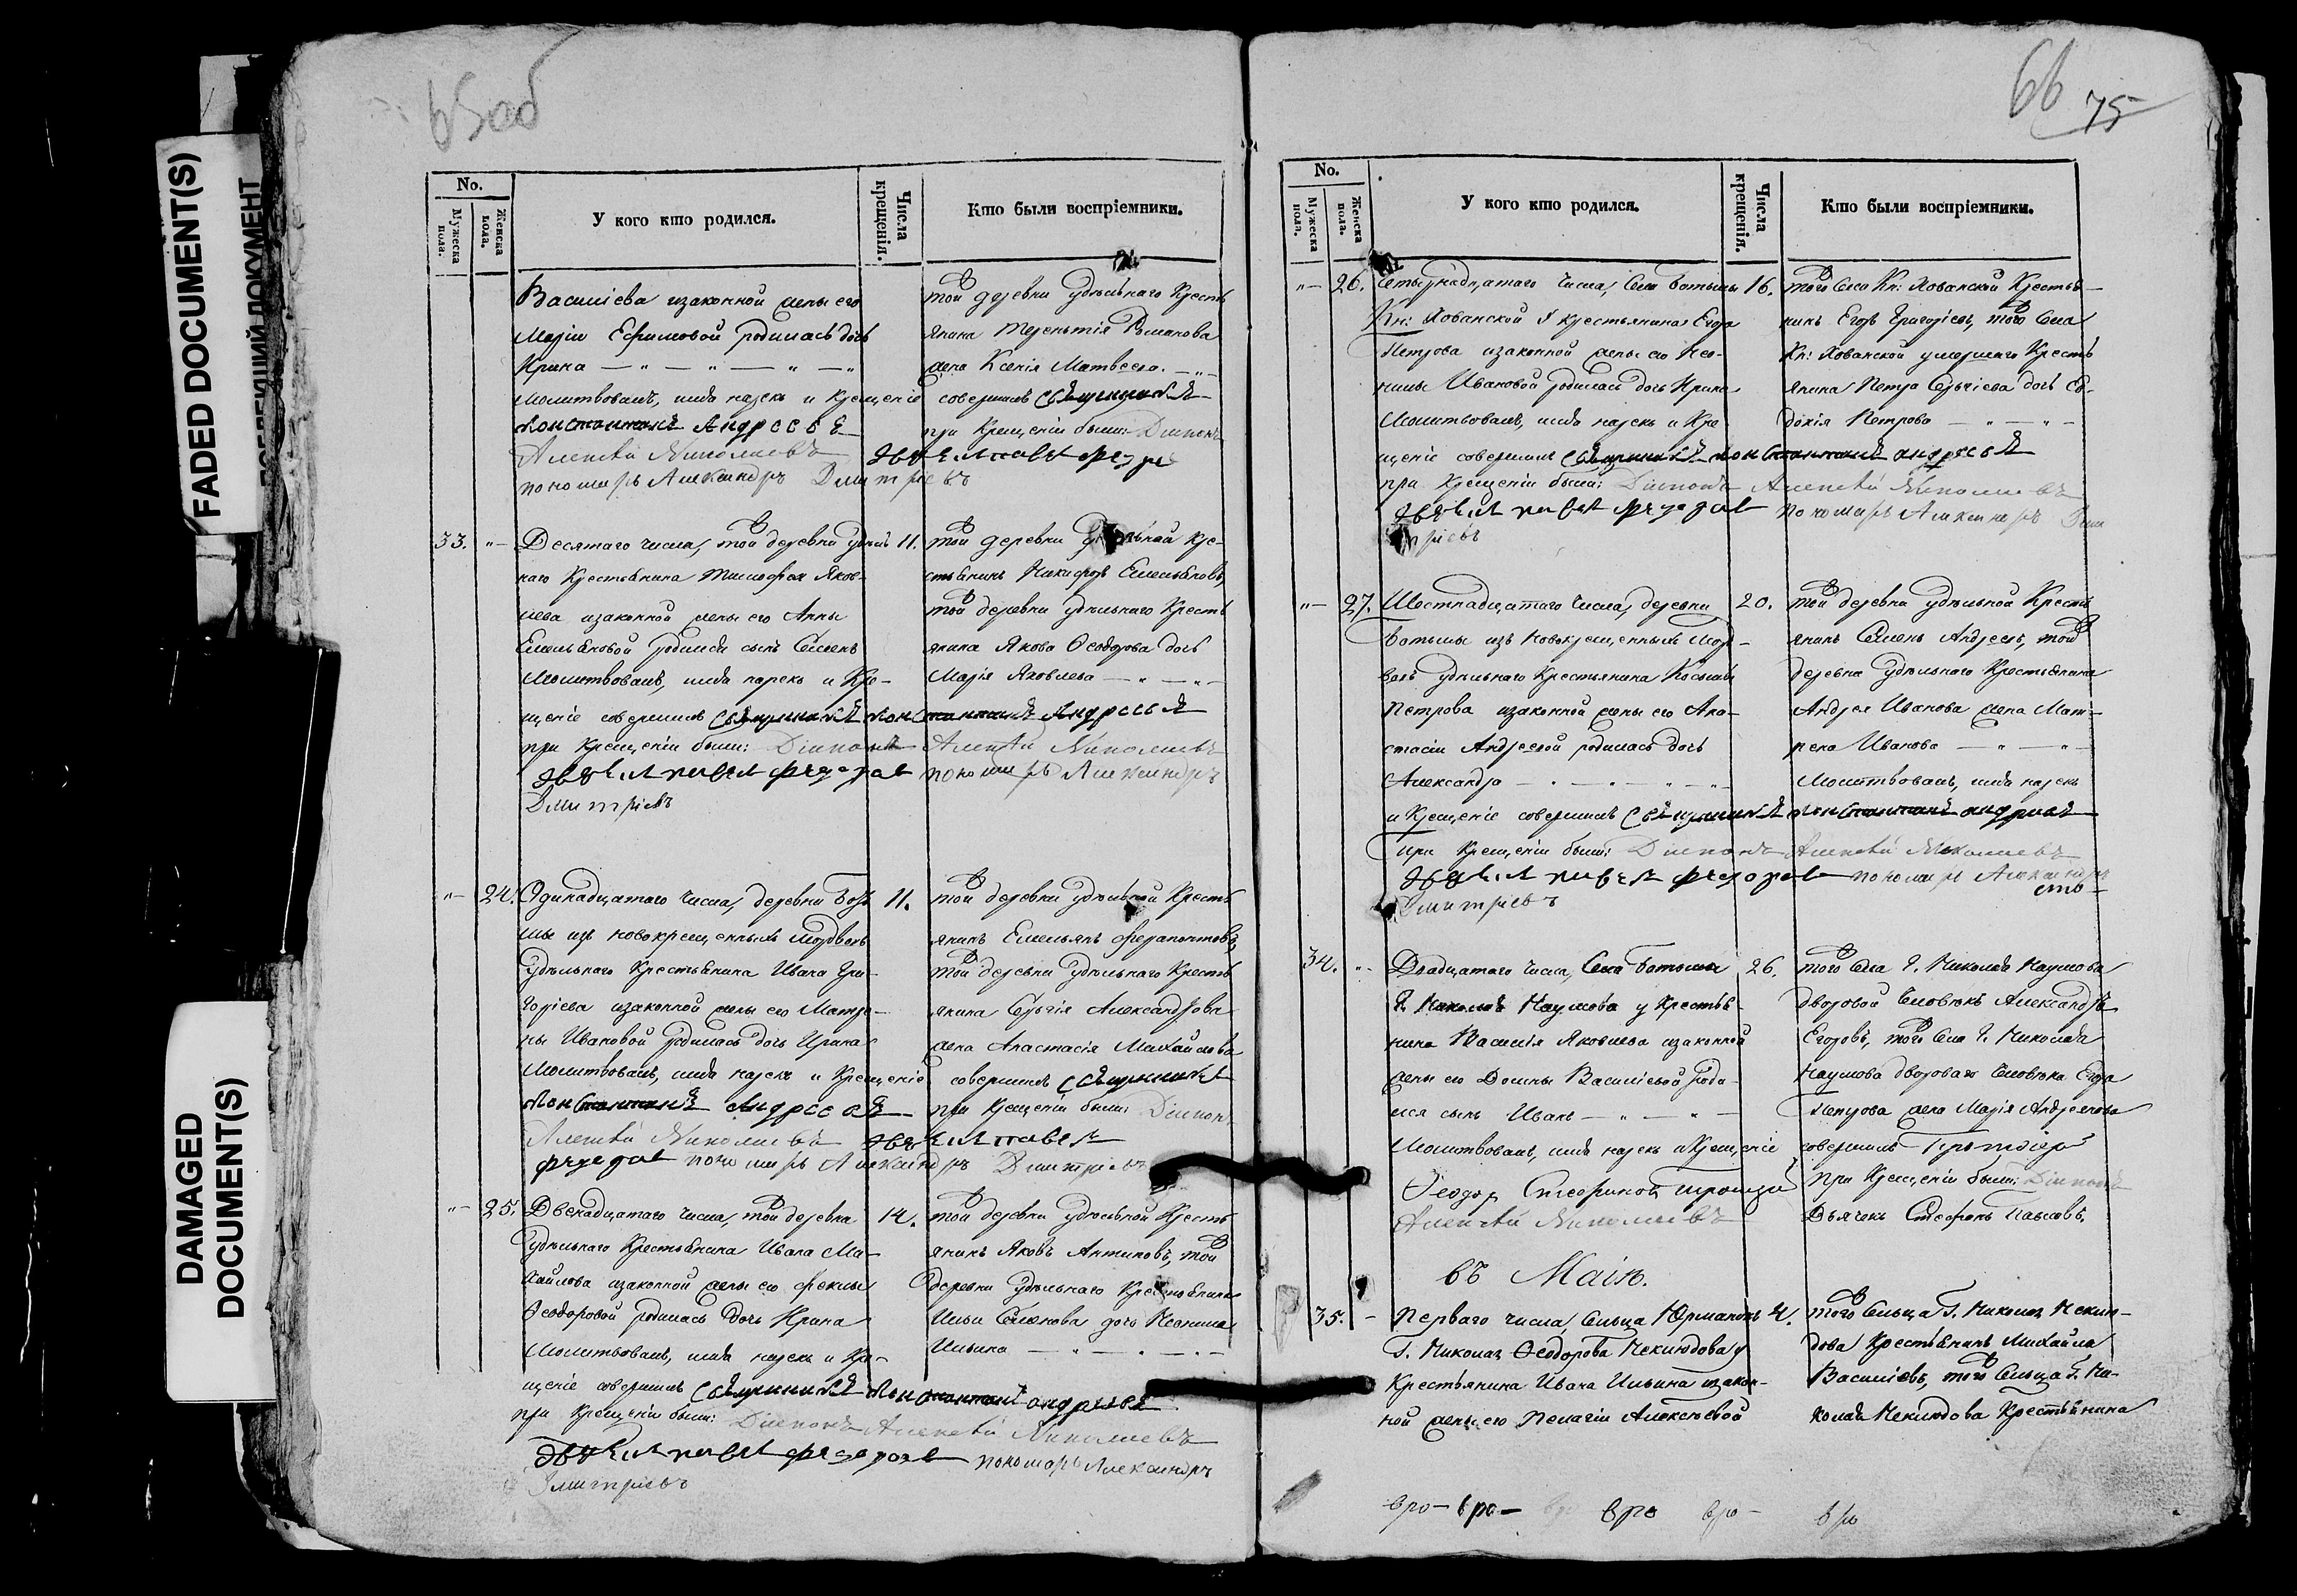 FADED DOCUMENT(S)
DAMAGED
DOCUMENT(S)
65 об
No.
Мужеска пола.
Женска пола.
У кого кто родился.
Числа крещенія.
Кто были воспріемники.
Василіева изаконной жены его
Маріи Ефимовой родилась дочь
Ирина
молитвовалъ, имя нарекъ и Крещеніе
Константинъ Андреевъ
Алексѣй Николаевъ
пономарь Александръ Дмитріевъ
той деревни удѣльнаго Кресть
янина Терентія Романова
жена Ксенія Матвеева.
совершилъ священникъ
при Крещеніи были: Діаконъ
33. Десятаго числа, той деревни удѣль 11.
наго Крестьянина Тимофея Яков-
лева изаконной жены его Анны
Емельяновой родился сынъ Семенъ
Молитвовалъ, имя нарекъ и Кре-
щеніе совершилъ священникъ Константинъ Андреевъ
при Крещеніи были: Діаконъ Алексѣй Николаевъ
пономарь Александръ
Дмитріевъ
той деревни удѣльной Кре-
стьянинъ Никифоръ Емельяновъ,
той деревни удѣльнаго Кресть
янина Якова Ѳеодорова дочь
Марія Яковлева
24. Одинадцатаго числа, деревни Бот 11.
мы изъ новокрещенныхъ мордвовъ
удѣльнаго Крестьянина Ивана Гри-
горіева изаконной жены его Матре-
ны Ивановой родилась дочь Ирина
Молитвовалъ, имя нарекъ и Крещеніе совершилъ священникъ
Константинъ Андреевъ при Крещеніи были: Діаконъ
Алексѣй Николаевъ
пономарь Александръ Дмитріевъ
той деревни удѣльной Кресть
янинъ Емельянъ Ферапонтовъ,
той деревни удѣльнаго Кресть
янина Сергія Александрова
жена Анастасія Михайлова
25. Двенадцатаго числа, той деревни 14.
удѣльнаго Крестьянина Ивана Ми-
хайлова изаконной жены его Феклы
Ѳеодоровой родилась дочь Ирина
Молитвовалъ, имя нарекъ и Кре-
щеніе совершилъ священникъ Константинъ Андреевъ
при Крещеніи были: Діаконъ Алексѣй Николаевъ
пономарь Александръ
Дмитріевъ
той деревни удѣльной Кресть
янинъ Яковъ Антиповъ, той
деревни удѣльнаго Крестьянина
Ильи Семенова дочь Неонила
Ильина
66
75
No.
Мужеска пола.
Женска пола.
У кого кто родился.
Числа крещенія.
Кто были воспріемники.
26. Четырнадцатаго числа, Села Ботьмы 16.
Кн: Хованской крестьянина Егора
Петрова изаконной жены его Нео-
нилы Ивановой родилась дочь Ирина
Молитвовалъ, имя нарекъ и Кре
щеніе совершилъ священникъ Константинъ Андреевъ
при Крещеніи были: Діаконъ Алексѣй Николаевъ
пономарь Александръ Дми
тріевъ
того Села Кн: Хованской Крестья-
нинъ Егоръ Григорьевъ, того Села
Кн: Хованской умершаго Кресть
янина Петра Сергіева дочь Ев-
докія Петрова
27. Шестнадцатаго числа, деревни 20.
Ботьмы изъ Новокрещенныхъ Мор-
вовъ удѣльнаго Крестьянина Косьмы
Петрова изаконной жены его Ана-
стасіи Андреевой родилась дочь
Александра
и Крещеніе совершилъ священникъ Константинъ Андреевъ
при Крещеніи были: Діаконъ Алексѣй Николаевъ
пономарь Александръ
Дмитріевъ
той деревни удѣльной Кресть
янинъ Семенъ Андреевъ, той
деревни удѣльнаго Крестьянина
Андрея Иванова жена Мат-
рена Иванова
Молитвовалъ, имя нарекъ
34. Двадцатаго числа, Села Ботьмы 26.
Г. Николая Наумова у Крестья-
нина Василія Яковлева изаконной
жены его Домны Васильевой роди-
лся сынъ Иванъ
Молитвовалъ, имя нарекъ и Крещеніе совершилъ
при Крещеніи были: Діаконъ
Алексѣй Николаевъ
Дьячекъ Стефанъ
того Села Г. Николая Наумова
дворовой Человѣкъ Александръ
Егоровъ, того Села Г. Николая
Наумова двороваго Человѣка Егора
Петрова жена Марія Андреянова
въ Маіѣ.
35. Перваго числа, Сельца Юрманокъ 4.
Г. Николая Ѳеодорова Неклюдова у
Крестьянина Ивана Ильина изакон-
ной жены его Пелагіи Алексѣевой
того Сельца Г. Николая Неклю-
дова Крестьянинъ Михайла
Василіевъ, того Сельца Г. Ни-
колая Неклюдова Крестьянина